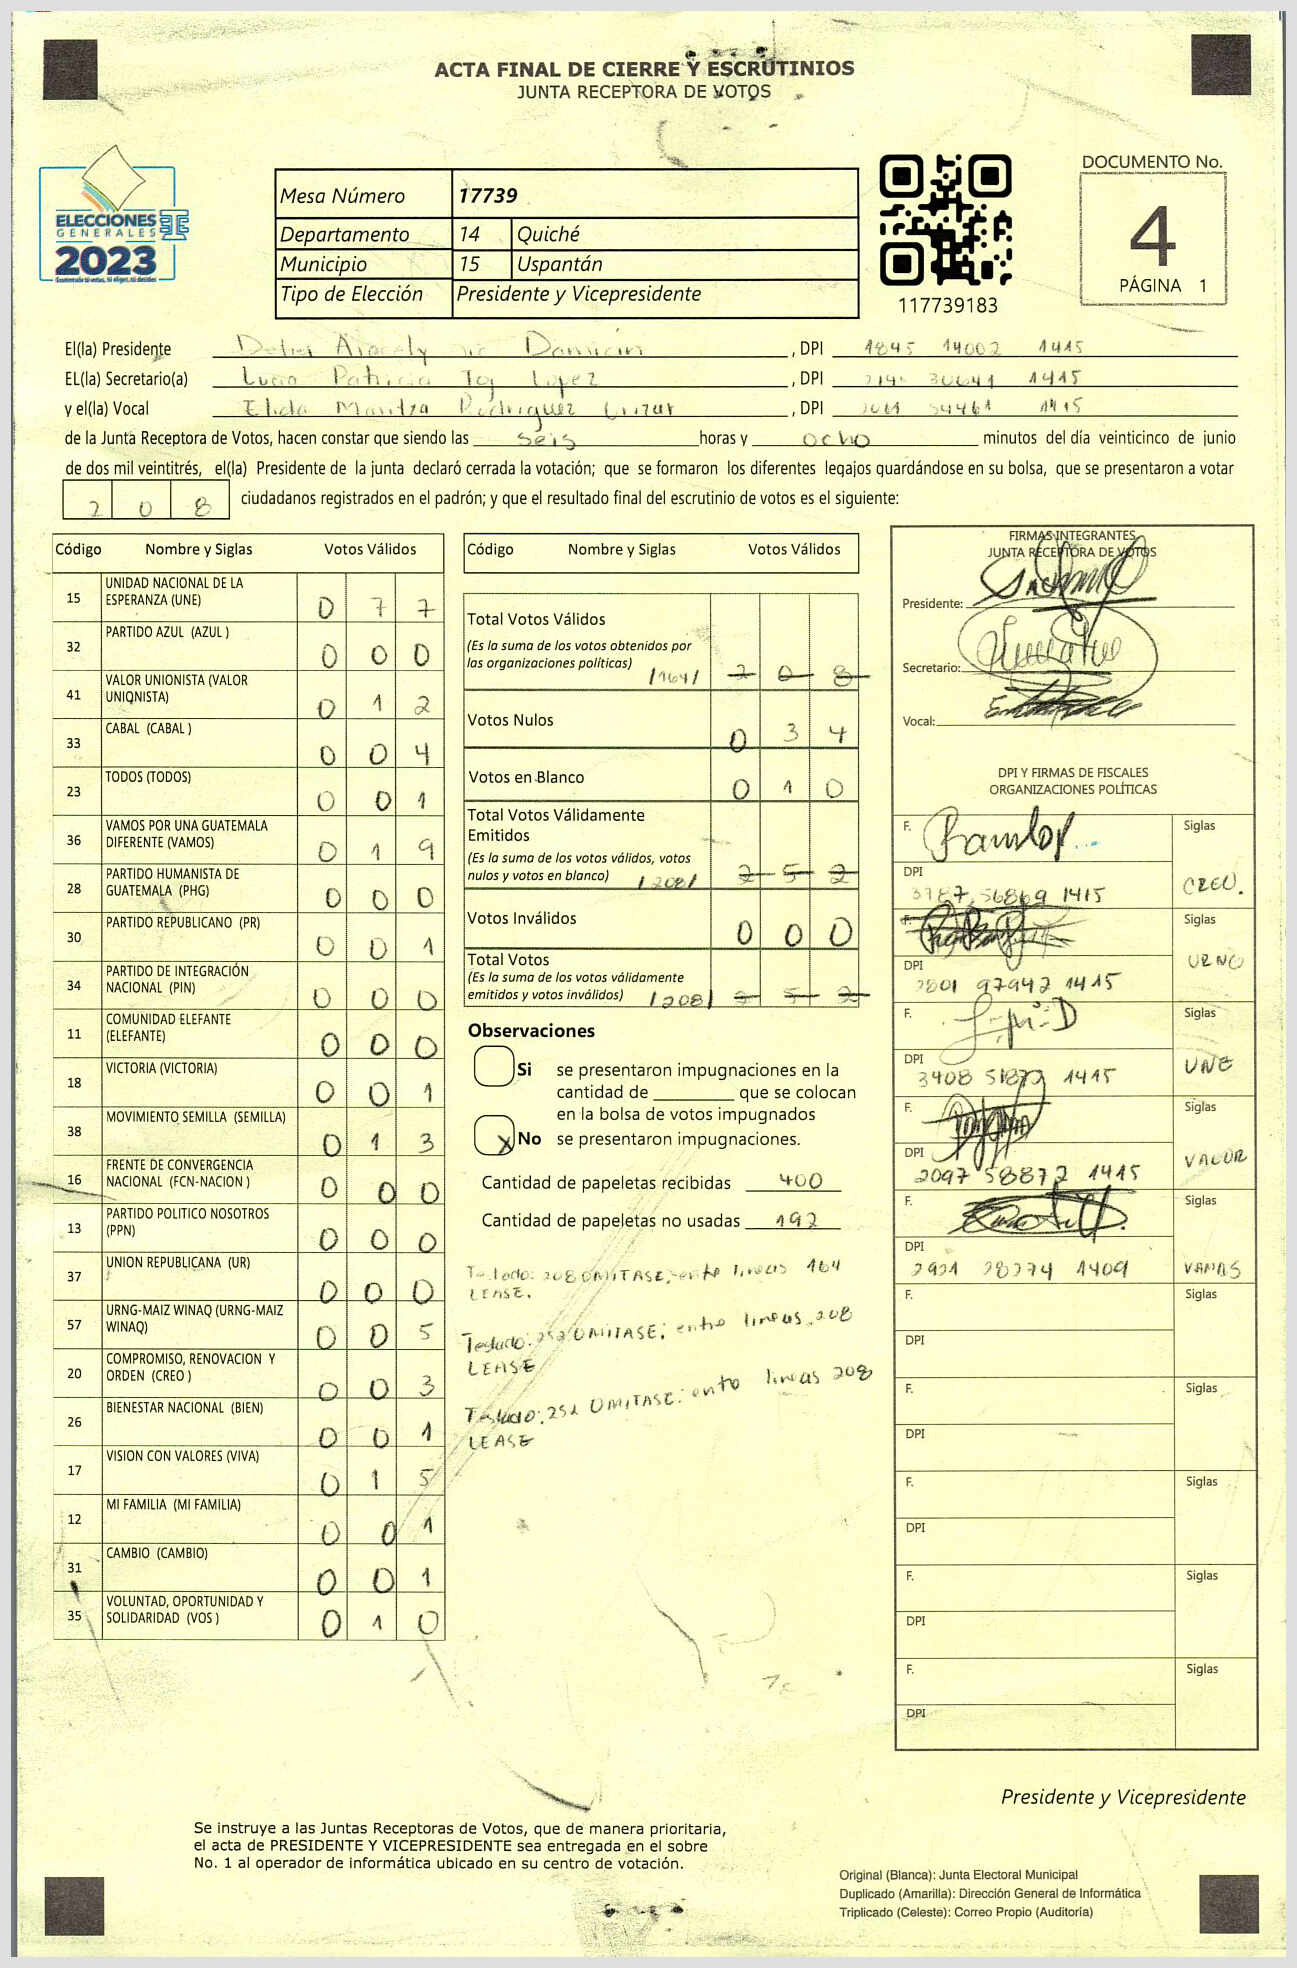 ACTA FINAL DE CIERRE Y ESCRUTINIOS
JUNTA RECEPTORA DE VOTOS
ELECCIONES
GENERALES
2023
Mesa Número 17739
Departamento 14 Quiché
Municipio 15 Uspantán
Tipo de Elección Presidente y Vicepresidente
117739183
DOCUMENTO No.
4
PÁGINA 1
El(la) Presidente Aracely , DPI 1845 14002 1415
EL(la) Secretario(a) Patricia Lopez , DPI 30641 1415
y el(la) Vocal Elida Maritza Rodriguez , DPI 54461 1415
de la Junta Receptora de Votos, hacen constar que siendo las seis horas y ocho minutos del día veinticinco de junio
de dos mil veintitrés, el(la) Presidente de la junta declaró cerrada la votación; que se formaron los diferentes legajos guardándose en su bolsa, que se presentaron a votar
2 0 8 ciudadanos registrados en el padrón; y que el resultado final del escrutinio de votos es el siguiente:
Código Nombre y Siglas Votos Válidos
15 UNIDAD NACIONAL DE LA ESPERANZA (UNE) 0 7 7
32 PARTIDO AZUL (AZUL ) 0 0 0
41 VALOR UNIONISTA (VALOR UNIONISTA) 0 1 2
33 CABAL (CABAL ) 0 0 4
23 TODOS (TODOS) 0 0 1
36 VAMOS POR UNA GUATEMALA DIFERENTE (VAMOS) 0 1 9
28 PARTIDO HUMANISTA DE GUATEMALA (PHG) 0 0 0
30 PARTIDO REPUBLICANO (PR) 0 0 1
34 PARTIDO DE INTEGRACIÓN NACIONAL (PIN) 0 0 0
11 COMUNIDAD ELEFANTE (ELEFANTE) 0 0 0
18 VICTORIA (VICTORIA) 0 0 1
38 MOVIMIENTO SEMILLA (SEMILLA) 0 1 3
16 FRENTE DE CONVERGENCIA NACIONAL (FCN-NACION ) 0 0 0
13 PARTIDO POLITICO NOSOTROS (PPN) 0 0 0
37 UNION REPUBLICANA (UR) 0 0 0
57 URNG-MAIZ WINAQ (URNG-MAIZ WINAQ) 0 0 5
20 COMPROMISO, RENOVACION Y ORDEN (CREO ) 0 0 3
26 BIENESTAR NACIONAL (BIEN) 0 0 1
17 VISION CON VALORES (VIVA) 0 1 5
12 MI FAMILIA (MI FAMILIA) 0 0 1
31 CAMBIO (CAMBIO) 0 0 1
35 VOLUNTAD, OPORTUNIDAD Y SOLIDARIDAD (VOS ) 0 1 0
Código Nombre y Siglas Votos Válidos
Total Votos Válidos
(Es la suma de los votos obtenidos por
las organizaciones políticas) /164/ 2 0 8
Votos Nulos 0 3 4
Votos en Blanco 0 1 0
Total Votos Válidamente
Emitidos
(Es la suma de los votos válidos, votos
nulos y votos en blanco) /208/ 2 5 2
Votos Inválidos 0 0 0
Total Votos
(Es la suma de los votos válidamente
emitidos y votos inválidos) /208/ 2 5 2
Observaciones
Si se presentaron impugnaciones en la
cantidad de ________ que se colocan
en la bolsa de votos impugnados
X No se presentaron impugnaciones.
Cantidad de papeletas recibidas 400
Cantidad de papeletas no usadas 192
Testado: 208 OMITASE: entre lineas 164
LEASE.
Testado: 252 OMITASE: entre lineas 208
LEASE
Testado: 252 OMITASE: entre lineas 208
LEASE
FIRMAS INTEGRANTES
JUNTA RECEPTORA DE VOTOS
Presidente:
Secretario:
Vocal:
DPI Y FIRMAS DE FISCALES
ORGANIZACIONES POLÍTICAS
F. Siglas
DPI 56869 1415 CREO.
F. Siglas
DPI 97942 1415
F. Siglas
DPI 3408 1415 UNE
F. Siglas
DPI 2097 58872 1415 VALOR
F. Siglas
DPI 2921 28274 1409 VAMOS
F. Siglas
DPI
F. Siglas
DPI
F. Siglas
DPI
F. Siglas
DPI
F. Siglas
DPI
Presidente y Vicepresidente
Se instruye a las Juntas Receptoras de Votos, que de manera prioritaria,
el acta de PRESIDENTE Y VICEPRESIDENTE sea entregada en el sobre
No. 1 al operador de informática ubicado en su centro de votación.
Original (Blanca): Junta Electoral Municipal
Duplicado (Amarilla): Dirección General de Informática
Triplicado (Celeste): Correo Propio (Auditoría)